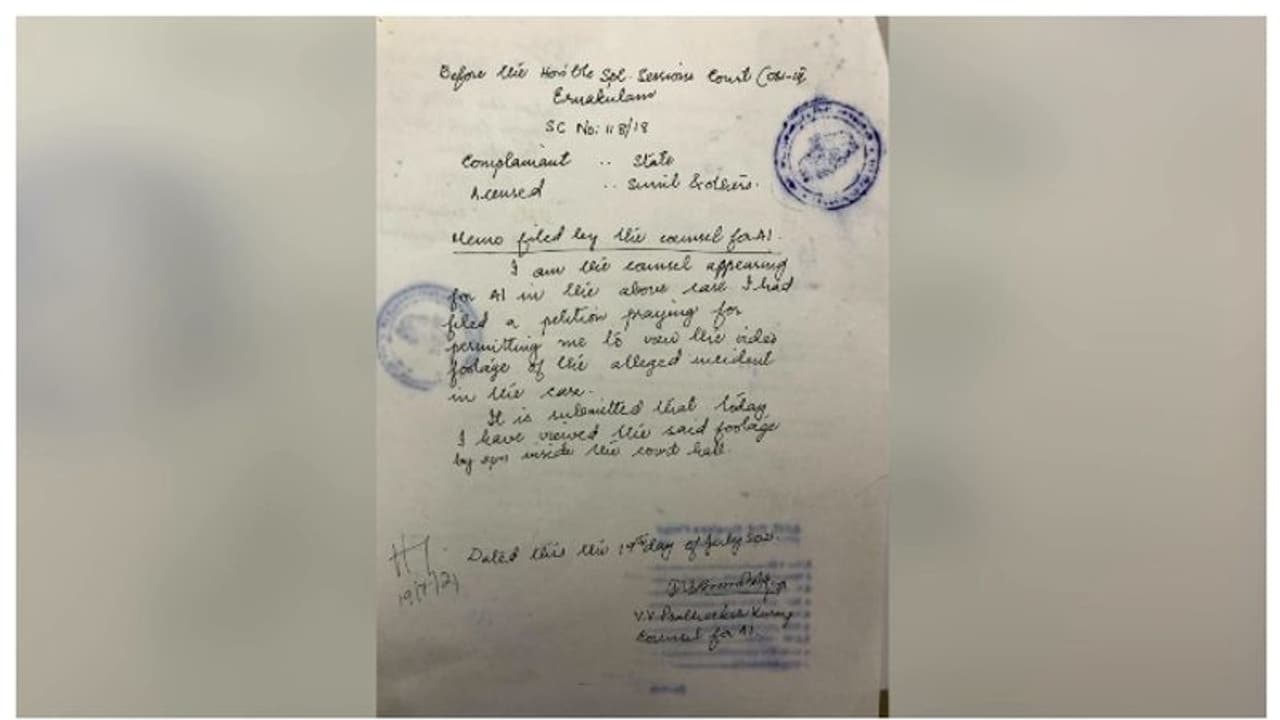 Before the Hon'ble Spl. Sessions Court
Ernakulam
SC No: 118/18
Complainant .. State
Accused .. Sunil & others.
Memo filed by the counsel for A1.
I am the counsel appearing
for A1 in the above case. I had
filed a petition praying for
permitting me to view the video
footage of the alleged incident
in the case.
It is submitted that today
I have viewed the said footage
by inside the court hall.
Dated this the 19th day of July
V.V
Counsel for A1.